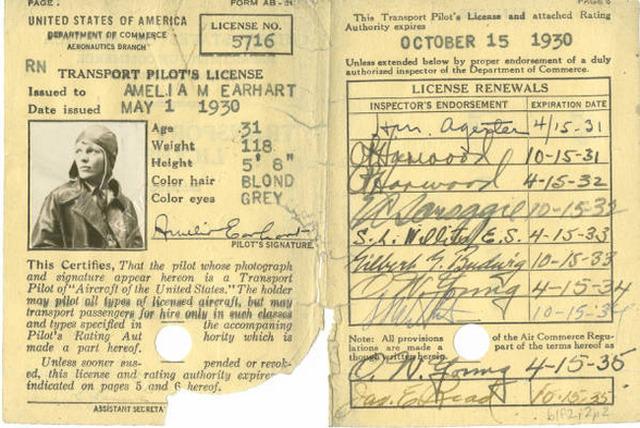 PAGE
UNITED STATES OF AMERICA
DEPARTMENT OF COMMERCE
AERONAUTICS BRANCH
FORM AB-
LICENSE NO.
5716
RN
TRANSPORT PILOT'S LICENSE
Issued to AMELIA M EARHART
Date issued MAY 1 1930
Age 31
Weight 118
Height 5' 8"
Color hair BLOND
Color eyes GREY
Amelia Earhart
PILOT'S SIGNATURE.
This Certifies, That the pilot whose photograph
and signature appear hereon is a Transport
Pilot of "Aircraft of the United States." The holder
may pilot all types of licensed aircraft, but may
transport passengers for hire only in such classes
and types specified in the accompanying
Pilot's Rating Aut hority which is
made a part hereof.
Unless sooner sus- pended or revok-
ed, this license and rating authority expires
indicated on pages 5 and 6 hereof.
ASSISTANT SECRETA
PAGE 5
This Transport Pilot's License and attached Rating
Authority expires
OCTOBER 15 1930
Unless extended below by proper endorsement of a duly
authorized inspector of the Department of Commerce.
LICENSE RENEWALS
INSPECTOR'S ENDORSEMENT EXPIRATION DATE
4/15-31
Harwood 10-15-31
Harwood 4-15-32
10-15-32
4-15-33
Gilbert G. Budwig 10-15-33
O. W. Young 4-15-34
10-15-34
Note: All provisions of the Air Commerce Regu-
lations are made a part of the terms hereof as
though written herein.
O. W. Young 4-15-35
10-15-35